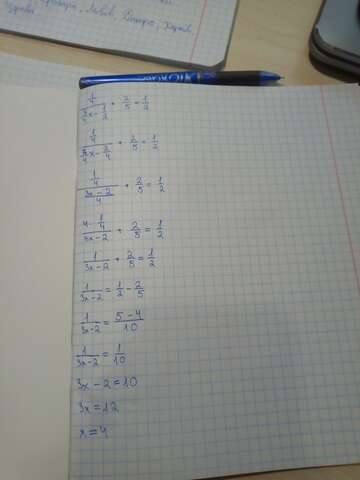 Львів, Дніпро, Харків,
(1/4)/(3/4x - 1/2) + 2/5 = 1/2
(1/4)/(3/4x - 2/4) + 2/5 = 1/2
(1/4)/((3x - 2)/4) + 2/5 = 1/2
(4 · 1/4)/(3x - 2) + 2/5 = 1/2
1/(3x - 2) + 2/5 = 1/2
1/(3x - 2) = 1/2 - 2/5
1/(3x - 2) = (5 - 4)/10
1/(3x - 2) = 1/10
3x - 2 = 10
3x = 12
x = 4